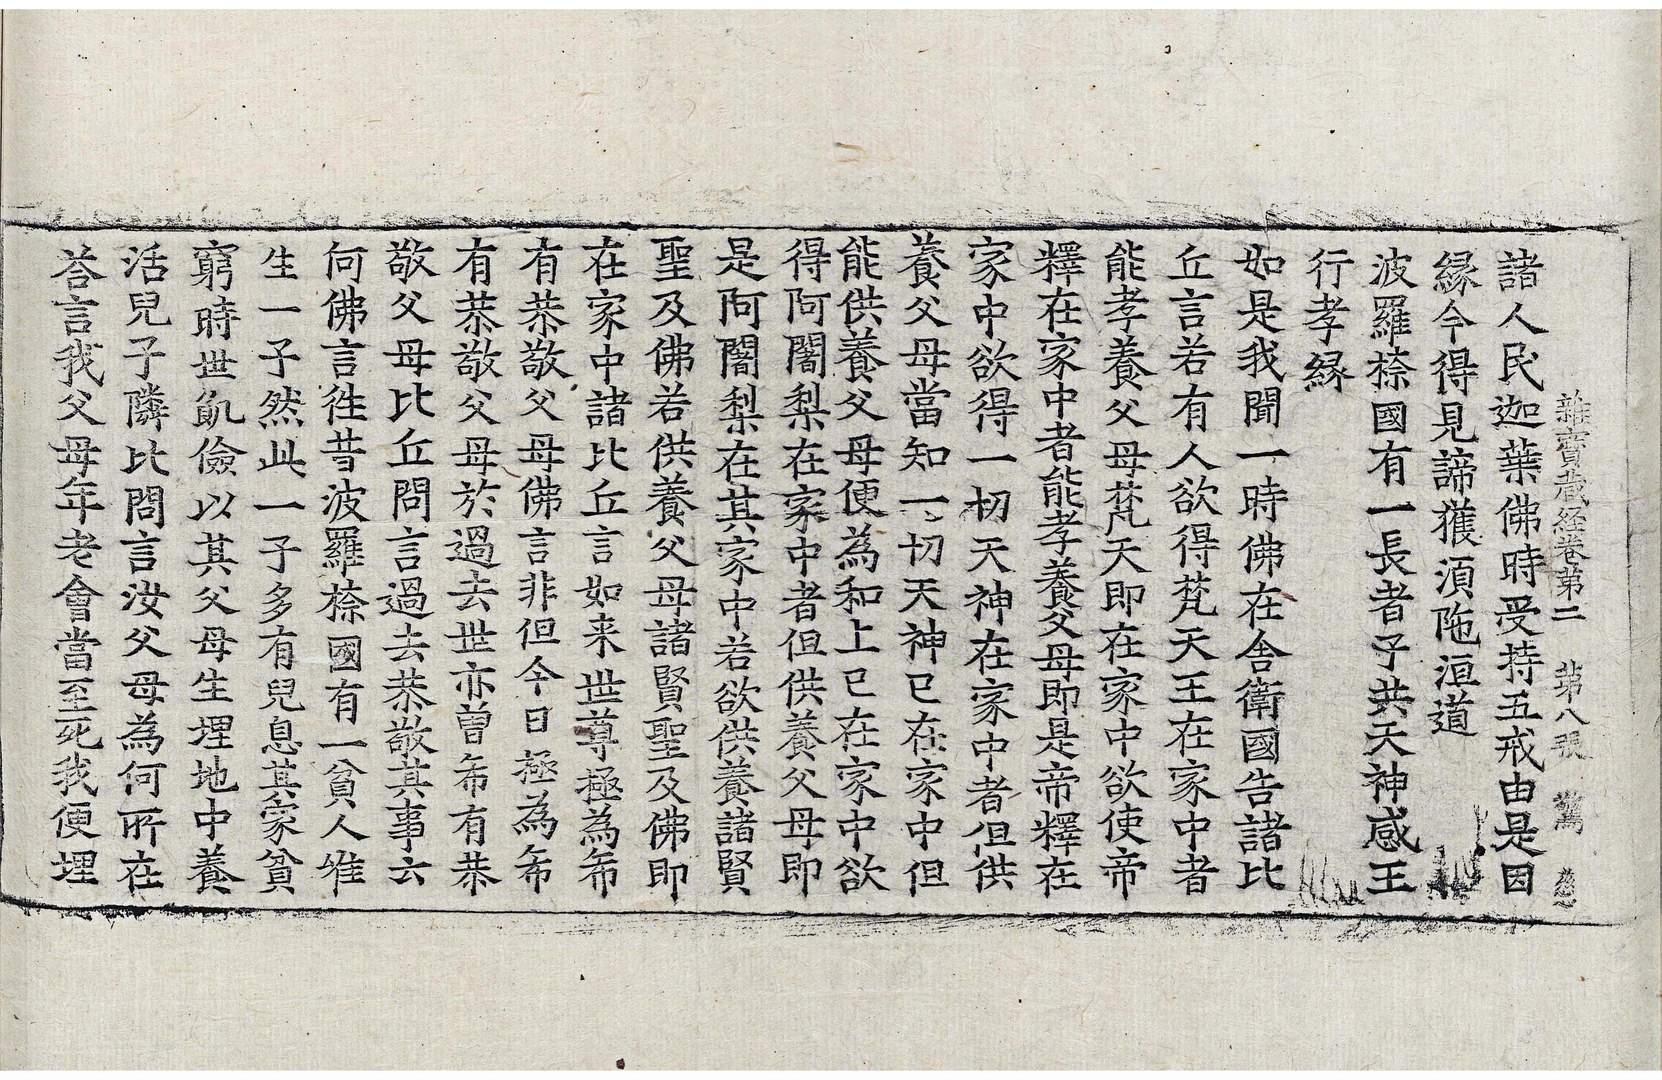 雜寶藏経卷第二 苐八張 驚
諸人民迦葉佛時受持五戒由是因
縁今得見諦獲湏陁洹道
波羅㮈國有一長者子共天神感王
行孝縁
如是我聞一時佛在舎衛國告諸比
丘言若有人欲得梵天王在家中者
能孝養父母梵天即在家中欲使帝
釋在家中者能孝養父母即是帝釋在
家中欲得一切天神在家中者但供
養父母當知一切天神已在家中但
能供養父母便為和上已在家中欲
得阿闍梨在家中者但供養父母即
是阿闍梨在其家中若欲供養諸賢
聖及佛若供養父母諸賢聖及佛即
在家中諸比丘言如来世尊極為希
有恭敬父母佛言非但今日極為希
有恭敬父母於過去世亦曾希有恭
敬父母比丘問言過去恭敬其事云
何佛言徃昔波羅㮈國有一貧人唯
生一子然此一子多有兒息其家貧
窮時世飢儉以其父母生埋地中養
活兒子隣比問言汝父母為何所在
荅言我父母年老會當至死我便埋